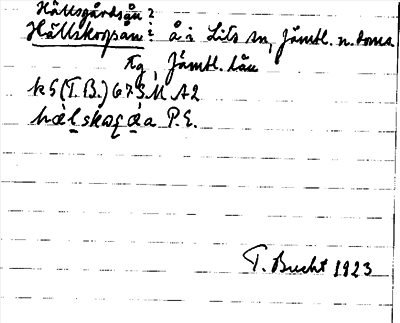 Hällsgårdsån?
Hällskogsan: å i Lits sn, Jämtl. n. doms.
tg, Jämtl. län
k5(T.B.) 673 M A2
hæ̀lskogæ̀a P.E.
T. Bucht 1923